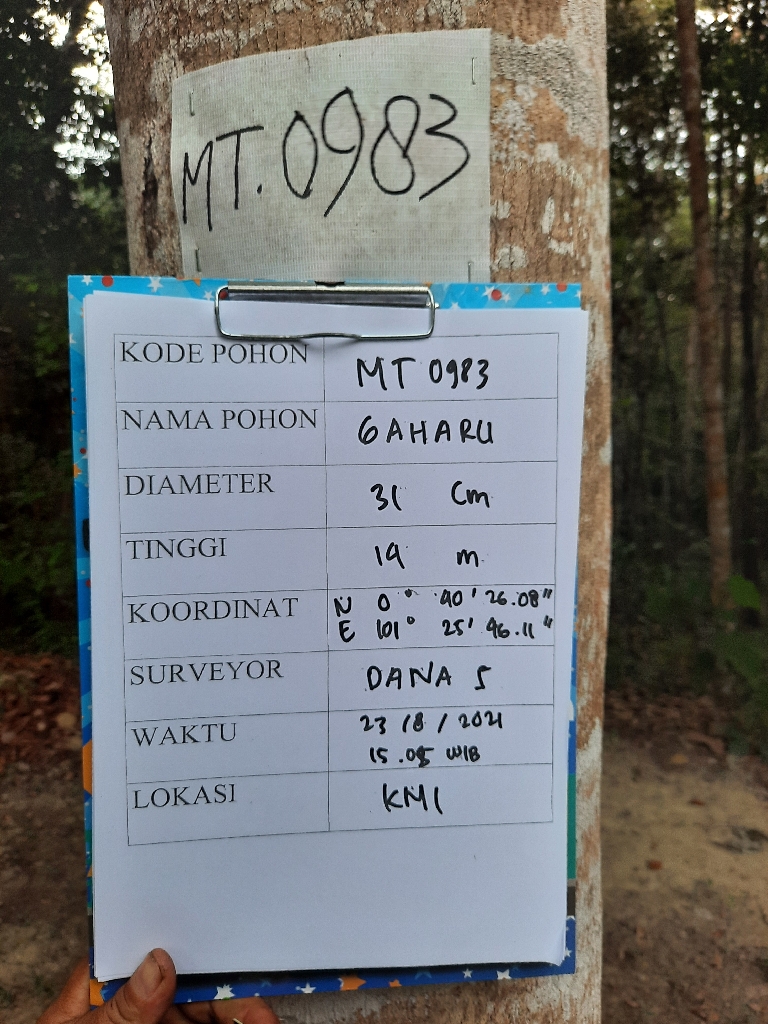 MT.0983
KODE POHON MT 0983
NAMA POHON GAHARU
DIAMETER 31 Cm
TINGGI 19 m
KOORDINAT N 0° 40' 26.08"
E 101° 25' 46.11"
SURVEYOR DANA S
WAKTU 23/8/2021
15.05 WIB
LOKASI KMI